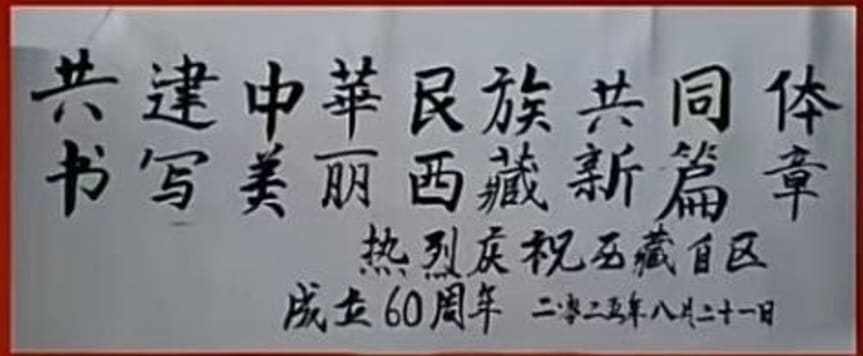 共建中華民族共同体
书写美丽西藏新篇章
热烈庆祝西藏自区
成立60周年 二零二五年八月二十一日